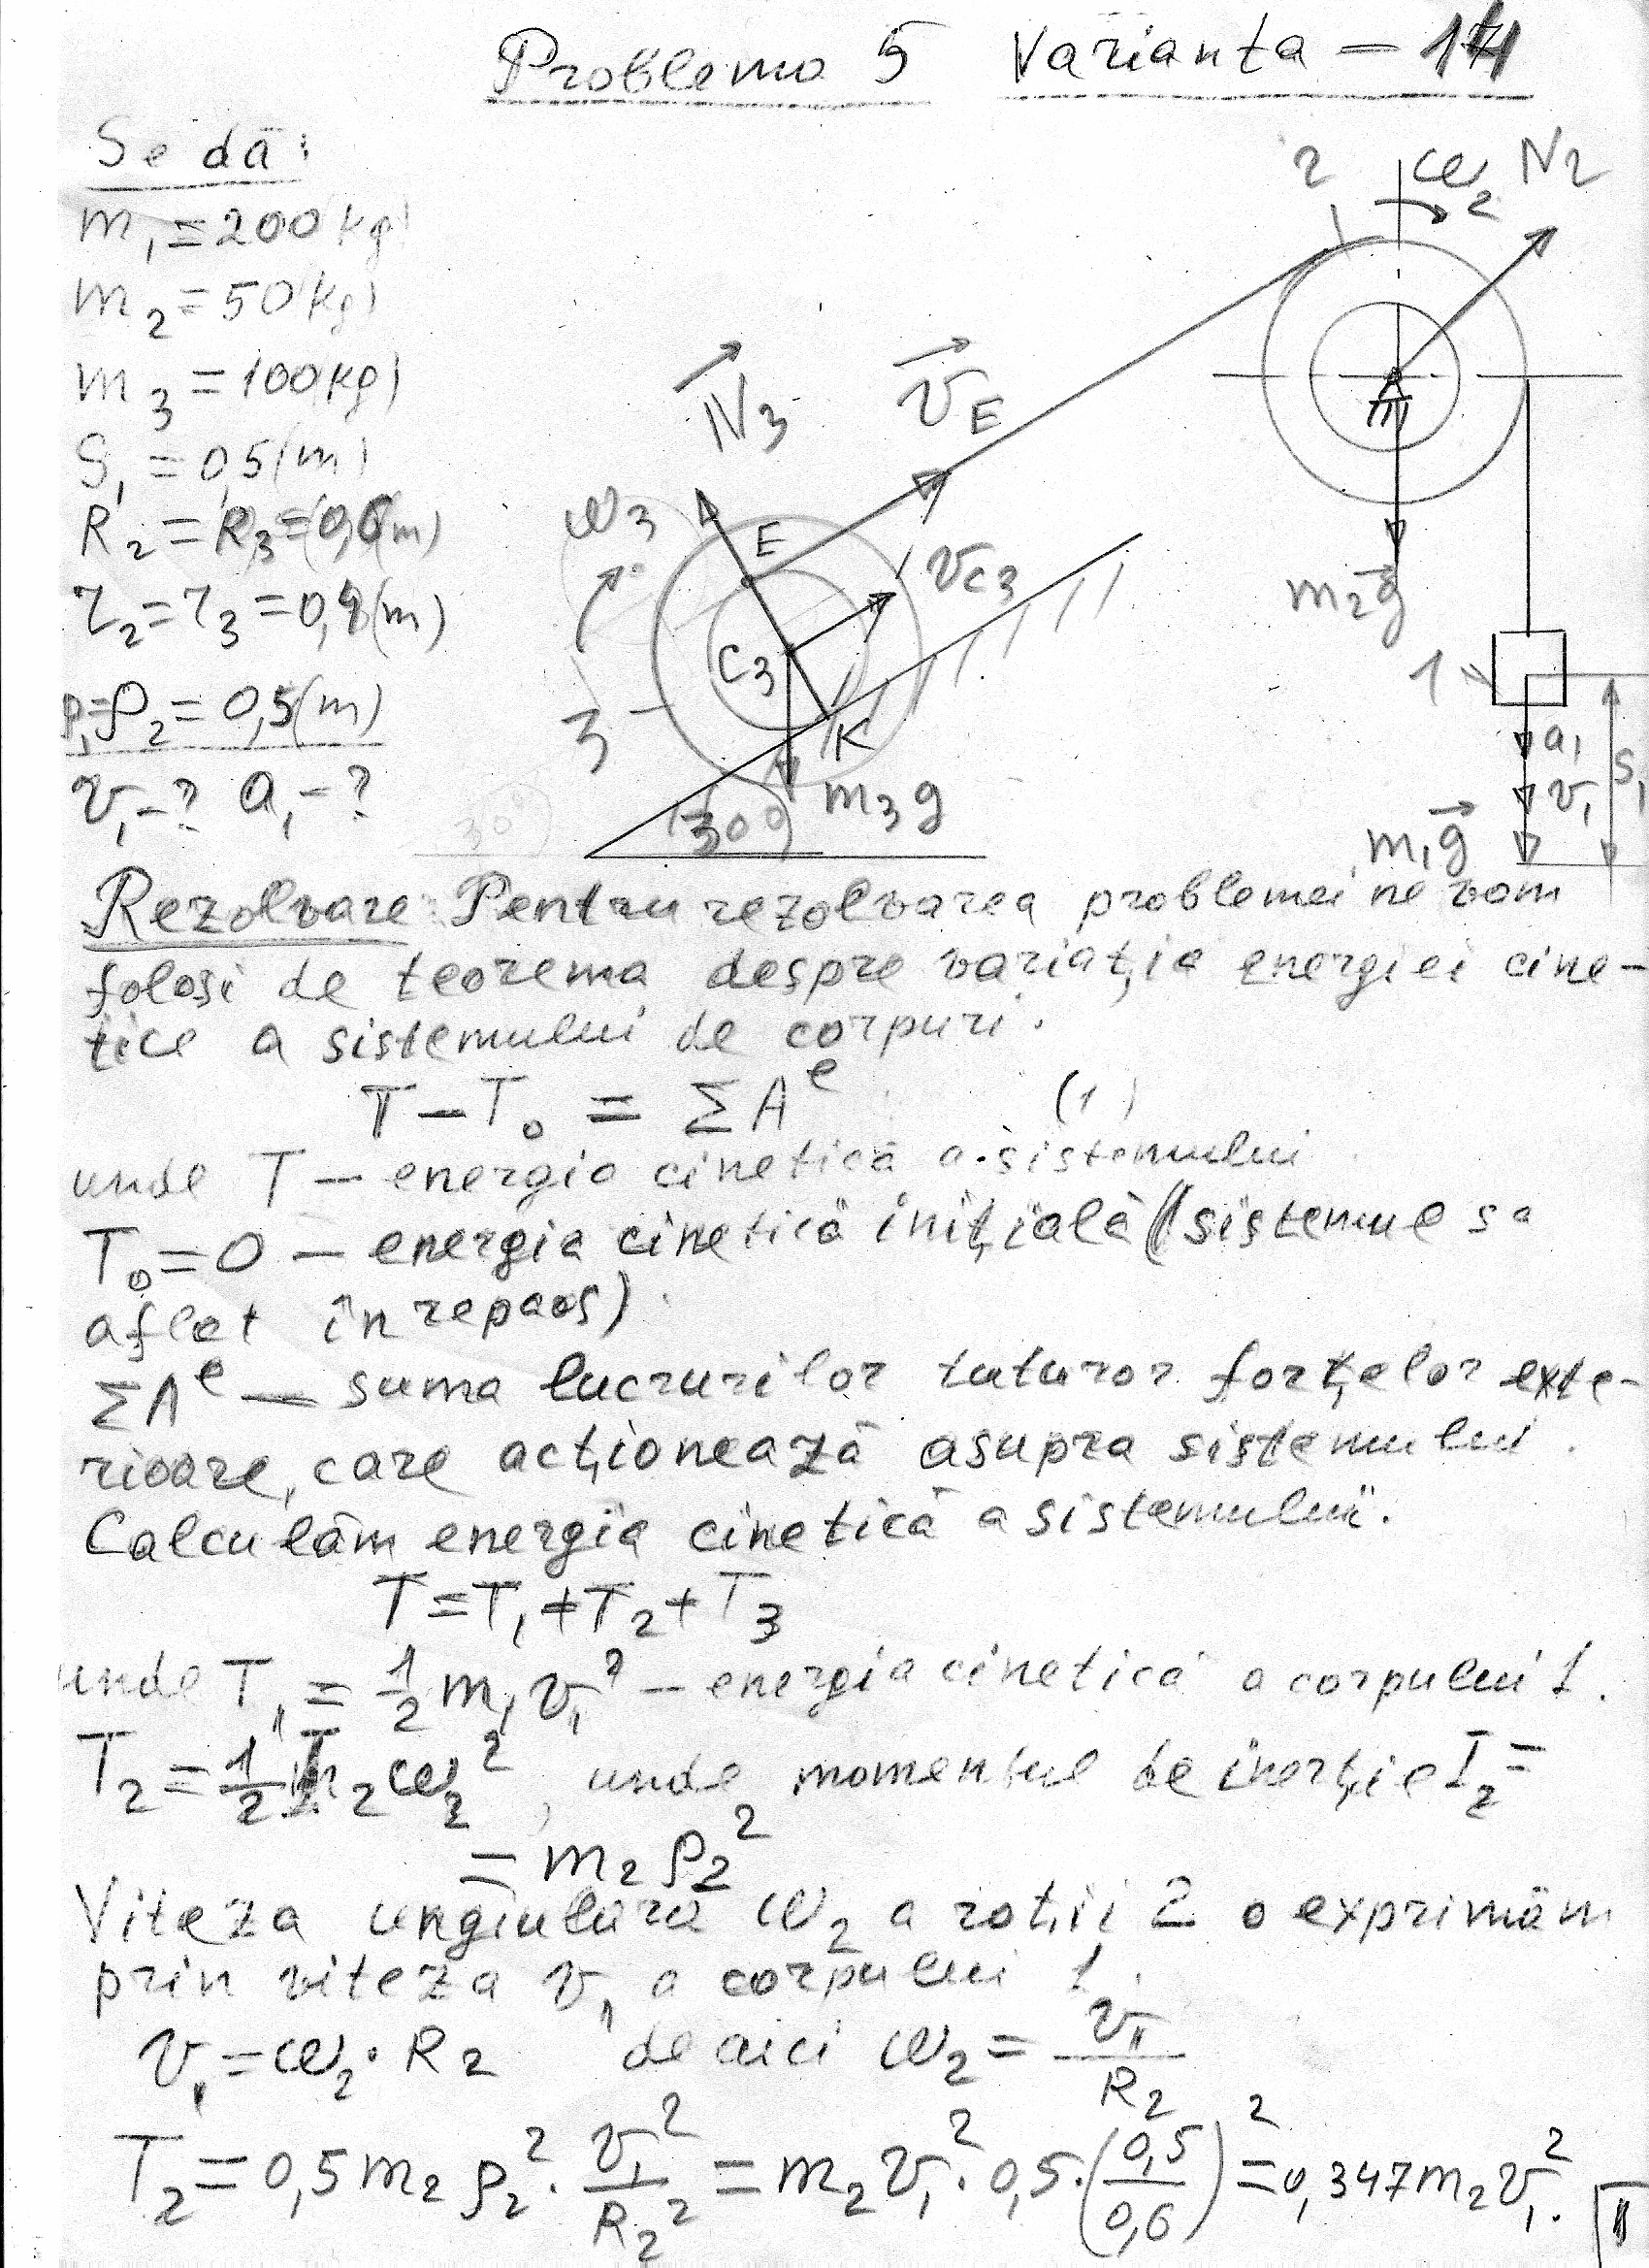 Problema 5 Varianta – 14
Se dă:
m₁ = 200(kg)
m₂ = 50(kg)
m₃ = 100(kg)
S₁ = 0,5(m)
R₂ = R₃ = 0,6(m)
r₂ = r₃ = 0,4(m)
ρ₂ = 0,5(m)
v₁ - ? a₁ - ?
2 ω₂ N₂
N₃ v_E
ω₃ E v_C3
C₃ K
3
m₃g
30°
m₂g
1
a₁
v₁
S₁
m₁g
Rezolvare: Pentru rezolvarea problemei ne vom
folosi de teorema despre variația energiei cine-
tice a sistemului de corpuri.
T – T₀ = ΣAᵉ (1)
unde T – energia cinetică a sistemului
T₀ = 0 – energia cinetică inițială (sistemul sa
aflat în repaos).
ΣAᵉ – suma lucrurilor tuturor forțelor exte-
rioare, care acționează asupra sistemului.
Calculăm energia cinetică a sistemului.
T = T₁ + T₂ + T₃
unde T₁ = 1/2 m₁v₁² – energia cinetică a corpului 1.
T₂ = 1/2 I₂ω₂², unde momentul de inerție I₂ =
= m₂ρ₂²
Viteza unghiulară ω₂ a roții 2 o exprimăm
prin viteza v₁ a corpului 1.
v₁ = ω₂ · R₂ de aici ω₂ = v₁/R₂
T₂ = 0,5m₂ρ₂² · v₁²/R₂² = m₂v₁² · 0,5 · (0,5/0,6)² = 0,347m₂v₁².